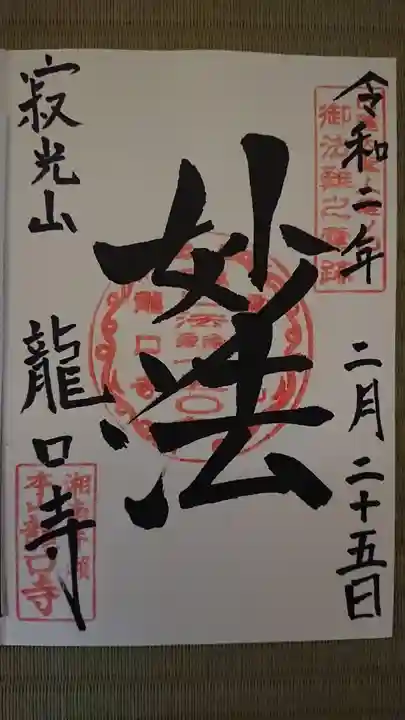 令和二年 二月二十五日
御法難之霊跡
妙法
寂光山 龍口寺
本山龍口寺